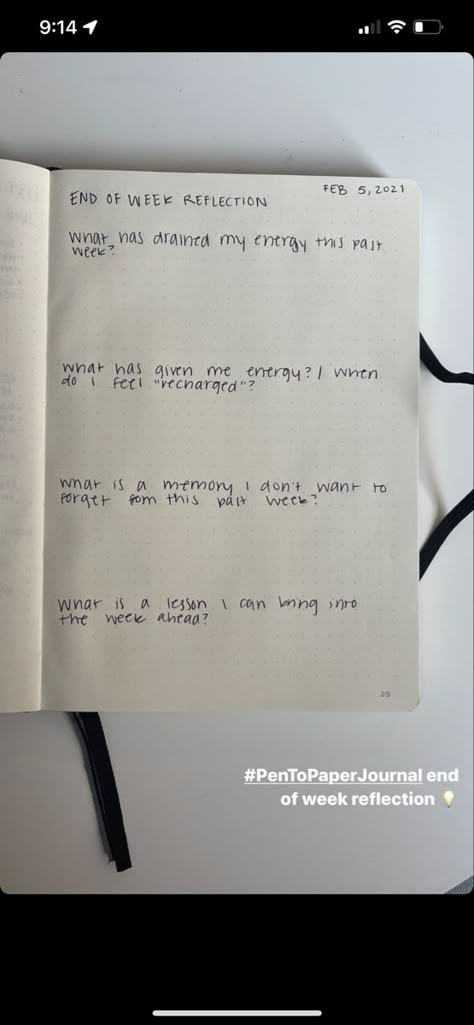 9:14
FEB 5, 2021
END OF WEEK REFLECTION
What has drained my energy this past
week?
What has given me energy? / When
do I feel "recharged"?
What is a memory I don't want to
forget fom this past week?
What is a lesson I can bring into
the week ahead?
25
#PenToPaperJournal end
of week reflection 💡